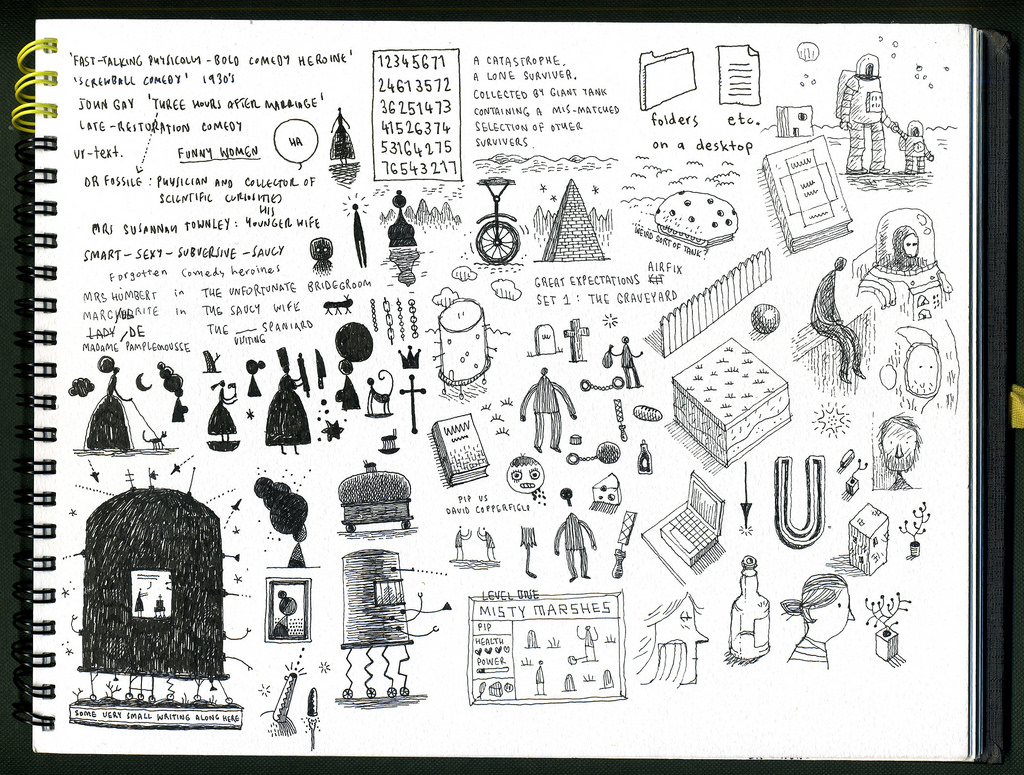 'FAST-TALKING PHYSICALLY-BOLD COMEDY HEROINE'
'SCREWBALL COMEDY' 1930'S
JOHN GAY 'THREE HOURS AFTER MARRIAGE'
LATE-RESTORATION COMEDY
ur-text.
FUNNY WOMEN
HA
DR FOSSILE : PHYSICIAN AND COLLECTOR OF
SCIENTIFIC CURIOSITIES
HIS
MRS SUSANNAH TOWNLEY : YOUNGER WIFE
SMART-SEXY-SUBVERSIVE-SAUCY
Forgotten Comedy heroines
MRS HUMBERT in THE UNFORTUNATE BRIDEGROOM
MARGUERITE in THE SAUCY WIFE
LADY DE THE __ SPANIARD
VISITING
MADAME PAMPLEMOUSSE
12345671
24613572
36251473
41526374
53164275
76543217
A CATASTROPHE.
A LONE SURVIVER.
COLLECTED BY GIANT TANK
CONTAINING A MIS-MATCHED
SELECTION OF OTHER
SURVIVERS.
folders etc.
on a desktop
WEIRD SORT OF TANK?
GREAT EXPECTATIONS AIRFIX
KIT
SET 1 : THE GRAVEYARD
PIP US
DAVID COPPERFIELD
LEVEL ONE
MISTY MARSHES
PIP
HEALTH
POWER
SOME VERY SMALL WRITING ALONG HERE